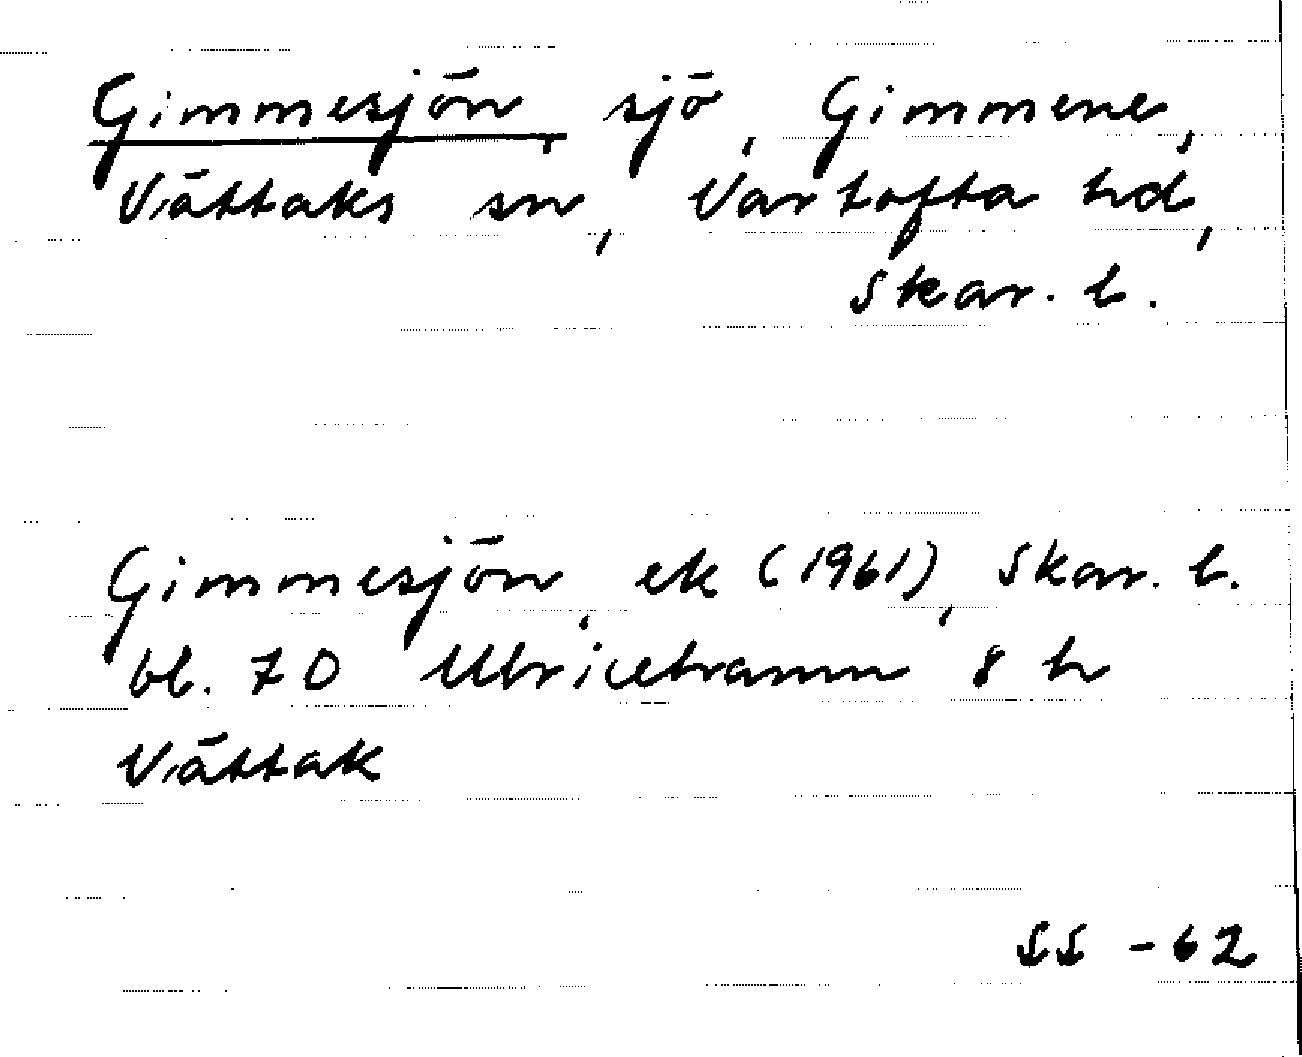 Gimmesjön, sjö, Gimmene,
Vättaks sn, Vartofta hd,
Skar. l.
Gimmesjön, ek (1961), Skar. l.
bl. 70 Ulricehamn 8 h
Vättak
SS -62